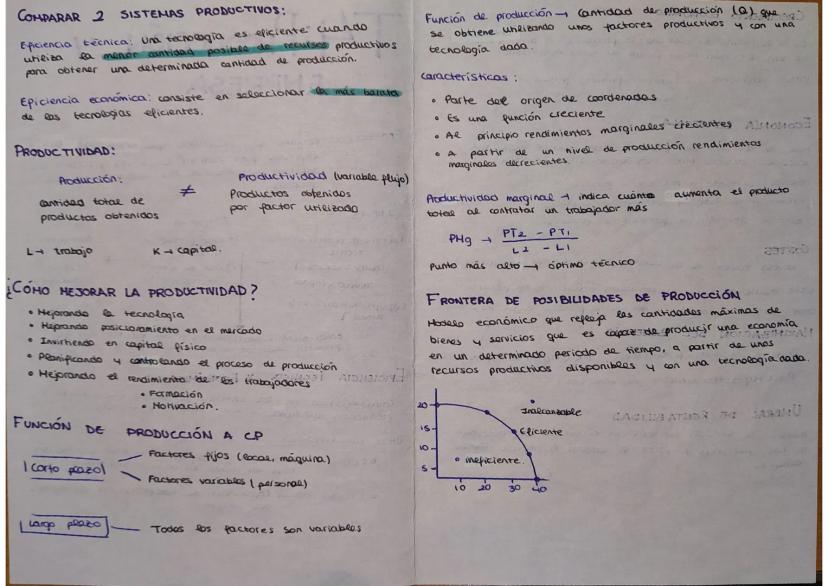 COMPARAR 2 SISTEMAS PRODUCTIVOS:
Eficiencia técnica: una tecnología es eficiente cuando
utiliza la menor cantidad posible de recursos productivos
para obtener una determinada cantidad de producción.
Eficiencia económica: consiste en seleccionar la más barata
de las tecnologías eficientes.
PRODUCTIVIDAD:
Producción:
cantidad total de
productos obtenidos
≠
Productividad (variable flujo)
Productos obtenidos
por factor utilizado
L → trabajo K → capital.
¿CÓMO MEJORAR LA PRODUCTIVIDAD?
• Mejorando la tecnología
• Mejorando posicionamiento en el mercado
• Invirtiendo en capital físico
• Planificando y controlando el proceso de producción
• Mejorando el rendimiento de los trabajadores
• Formación
• Motivación.
FUNCIÓN DE PRODUCCIÓN A CP
Corto plazo
Factores fijos (local, máquina)
Factores variables (personal)
Largo plazo
Todos los factores son variables
Función de producción → cantidad de producción (Q) que
se obtiene utilizando unos factores productivos y con una
tecnología dada.
características:
• Parte del origen de coordenadas
• Es una función creciente
• Al principio rendimientos marginales crecientes
• A partir de un nivel de producción rendimientos
marginales decrecientes.
Productividad marginal → indica cuánto aumenta el producto
total al contratar un trabajador más
PMg → PT2 - PT1
L2 - L1
Punto más alto → óptimo técnico
FRONTERA DE POSIBILIDADES DE PRODUCCIÓN
Modelo económico que refleja las cantidades máximas de
bienes y servicios que es capaz de producir una economía
en un determinado periodo de tiempo, a partir de unos
recursos productivos disponibles y con una tecnología dada.
20
Inalcanzable
15
Eficiente
10
ineficiente.
5
10 20 30 40